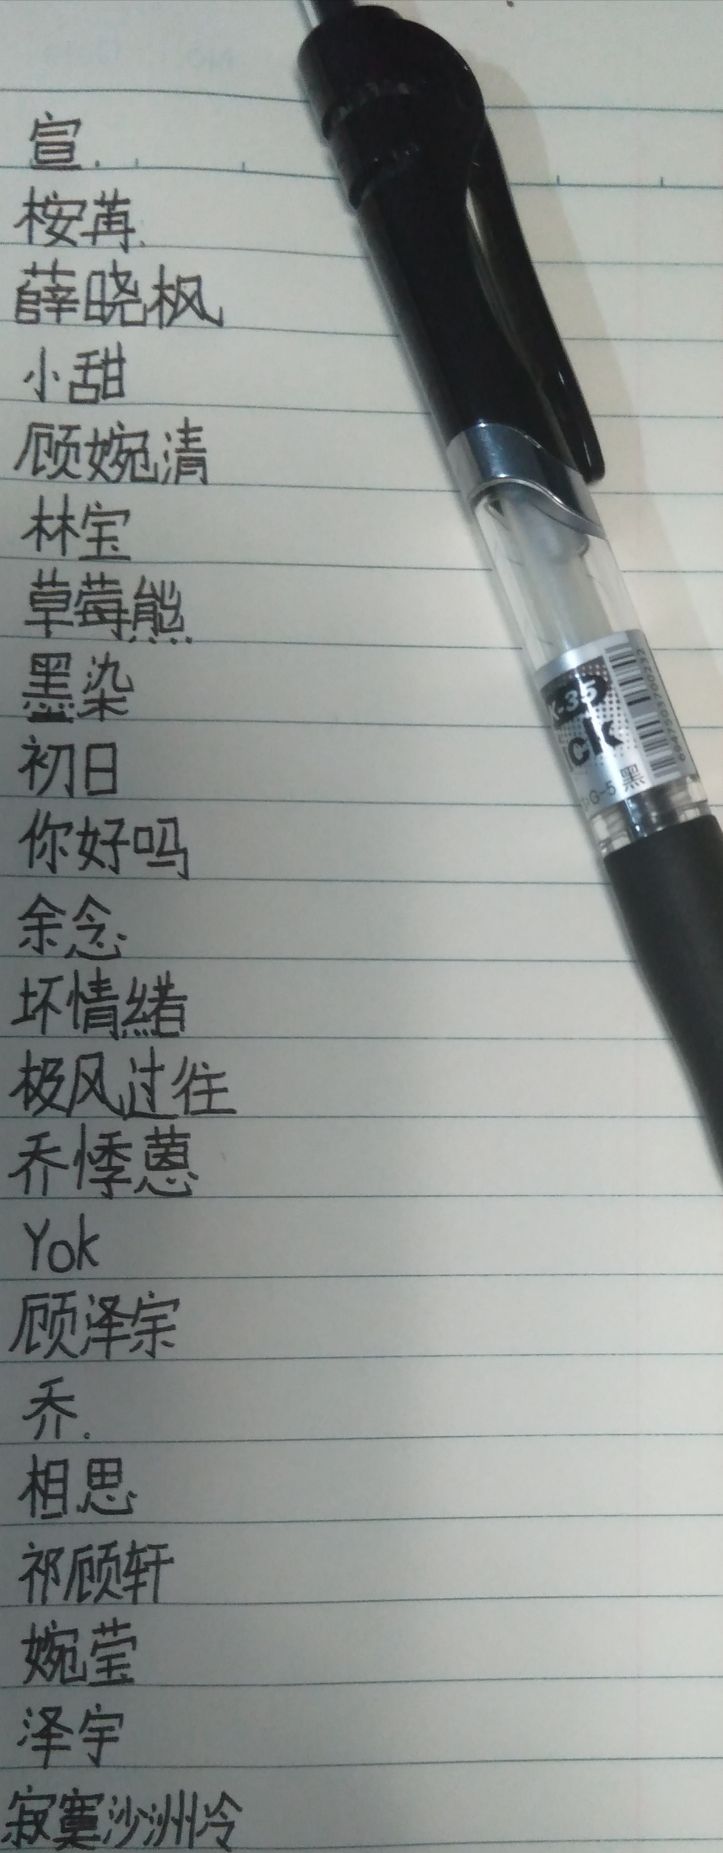 宣.
桉苒.
薛晓枫
小甜
顾婉清
林宝
草莓熊
墨染
初日
你好吗
余念
坏情緒
极风过往
乔悸蒽
Yok
顾泽宗
乔.
相思
祁顾轩
婉莹
泽宇
寂寞沙洲冷
K-35
ck
G-5 黑